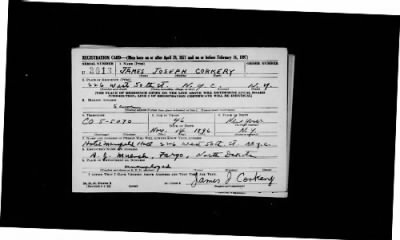 REGISTRATION CARD—(Men born on or after April 28, 1877 and on or before February 16, 1897)
SERIAL NUMBER 1. Name (Print) ORDER NUMBER
U 2613 JAMES JOSEPH CORKERY
2. Place of Residence (Print)
226 West 50th St. N.Y.C. N.Y.
[THE PLACE OF RESIDENCE GIVEN ON THE LINE ABOVE WILL DETERMINE LOCAL BOARD JURISDICTION; LINE 2 OF REGISTRATION CERTIFICATE WILL BE IDENTICAL]
3. Mailing Address
Same
4. Telephone 5. Age in Years 6. Place of Birth
CO 5-5070 46 New York
Date of Birth
Nov. 1896 N.Y.
7. Name and Address of Person Who Will Always Know Your Address
Hotel 226 West 50th St. N.Y.C.
8. Employer's Name and Address
Fargo, North Dakota
9. Place of Employment or Business
Unemployed
I Affirm That I Have Verified Above Answers and That They Are True.
James J Corkery